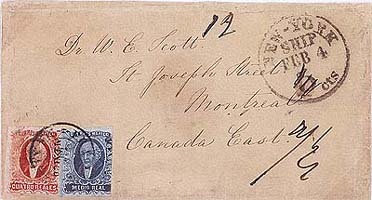 12
NEW-YORK
SHIP
FEB 4
10 cts
Dr. W. E. Scott.
St Joseph Street
Montreal
Canada East.
CUATRO REALES
MEDIO REAL